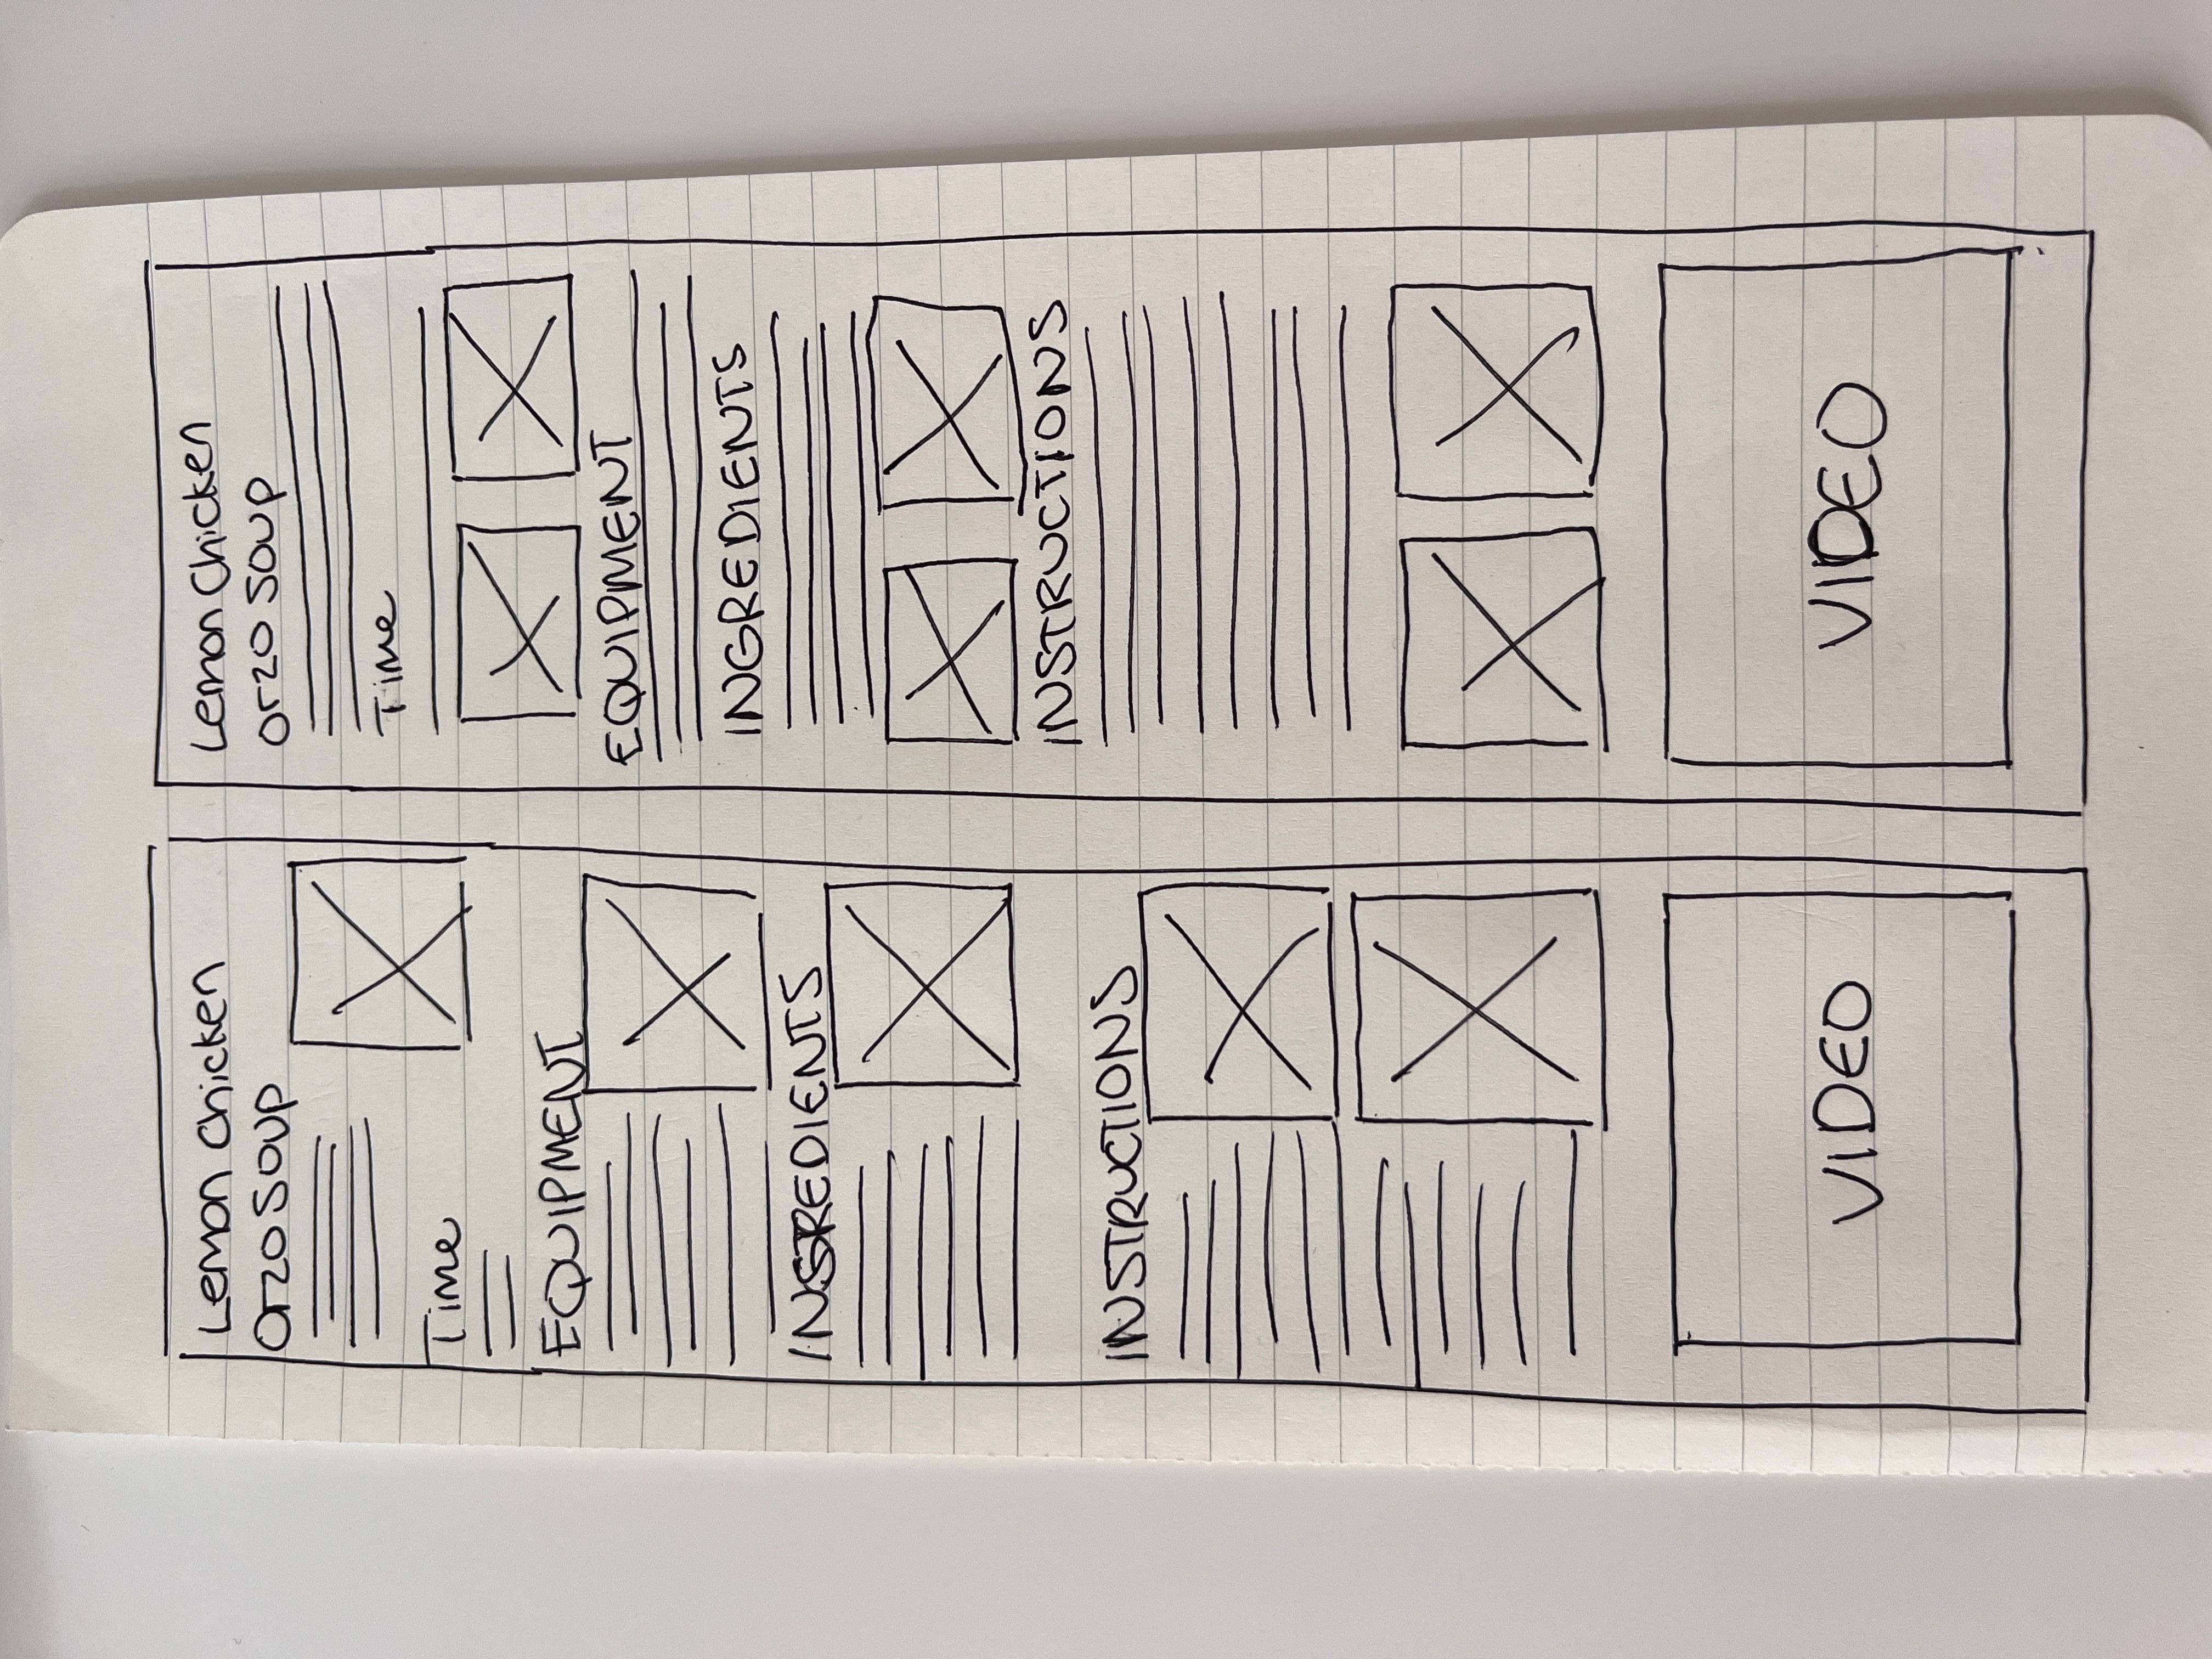 Lemon Chicken
Orzo Soup
Time
EQUIPMENT
INSREDIENTS
INSTRUCTIONS
VIDEO
Lemon Chicken
Orzo Soup
Time
EQUIPMENT
INGREDIENTS
INSTRUCTIONS
VIDEO